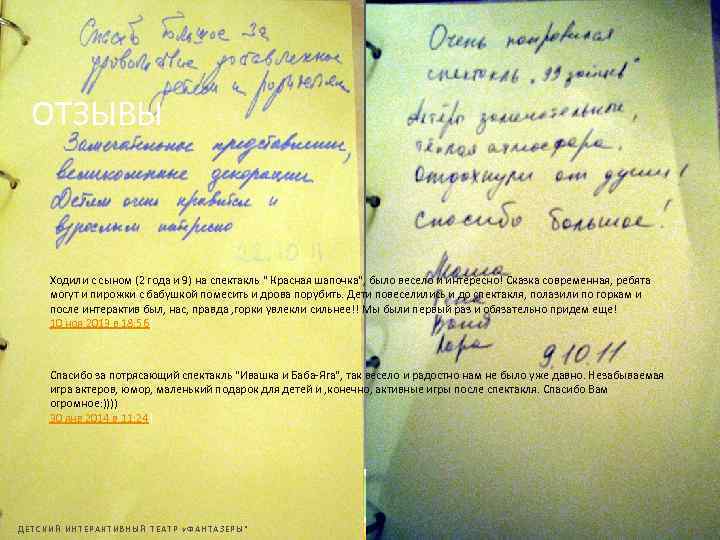 Спасибо большое за
удовольствие доставленное
детям и родителям
ОТЗЫВЫ
Замечательное представление,
великолепные декорации
Детям очень нравится и
взрослым интересно
22.10.11
Очень понравился
спектакль „99 зайцев"
Актёры замечательные,
тёплая атмосфера.
Отдохнули от души!
Спасибо большое!
Маша
Ваня
Лара
9.10.11
Ходили с сыном (2 года и 9) на спектакль " Красная шапочка", было весело и интересно! Сказка современная, ребята
могут и пирожки с бабушкой помесить и дрова порубить. Дети повеселились и до спектакля, полазили по горкам и
после интерактив был, нас, правда ,горки увлекли сильнее!! Мы были первый раз и обязательно придем еще!
10 ноя 2013 в 18:56
Спасибо за потрясающий спектакль "Ивашка и Баба-Яга", так весело и радостно нам не было уже давно. Незабываемая
игра актеров, юмор, маленький подарок для детей и ,конечно, активные игры после спектакля. Спасибо Вам
огромное:))))
30 янв 2014 в 11:24
ДЕТСКИЙ ИНТЕРАКТИВНЫЙ ТЕАТР «ФАНТАЗЕРЫ"